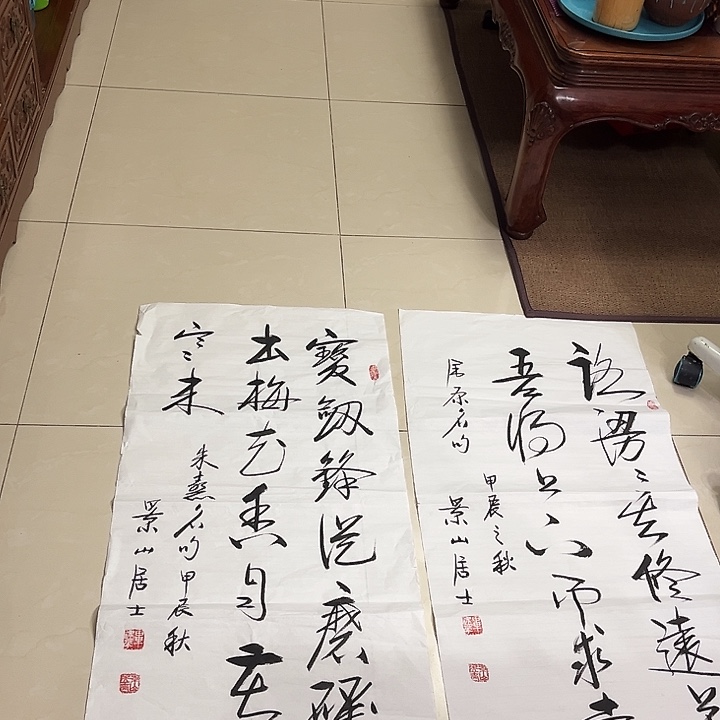 路漫〻其修遠
吾将上下而求
屈原名句
甲辰之秋
景山居士
寶劔鋒從磨礪
出梅花香自苦
寒来
朱熹名句甲辰秋
景山居士